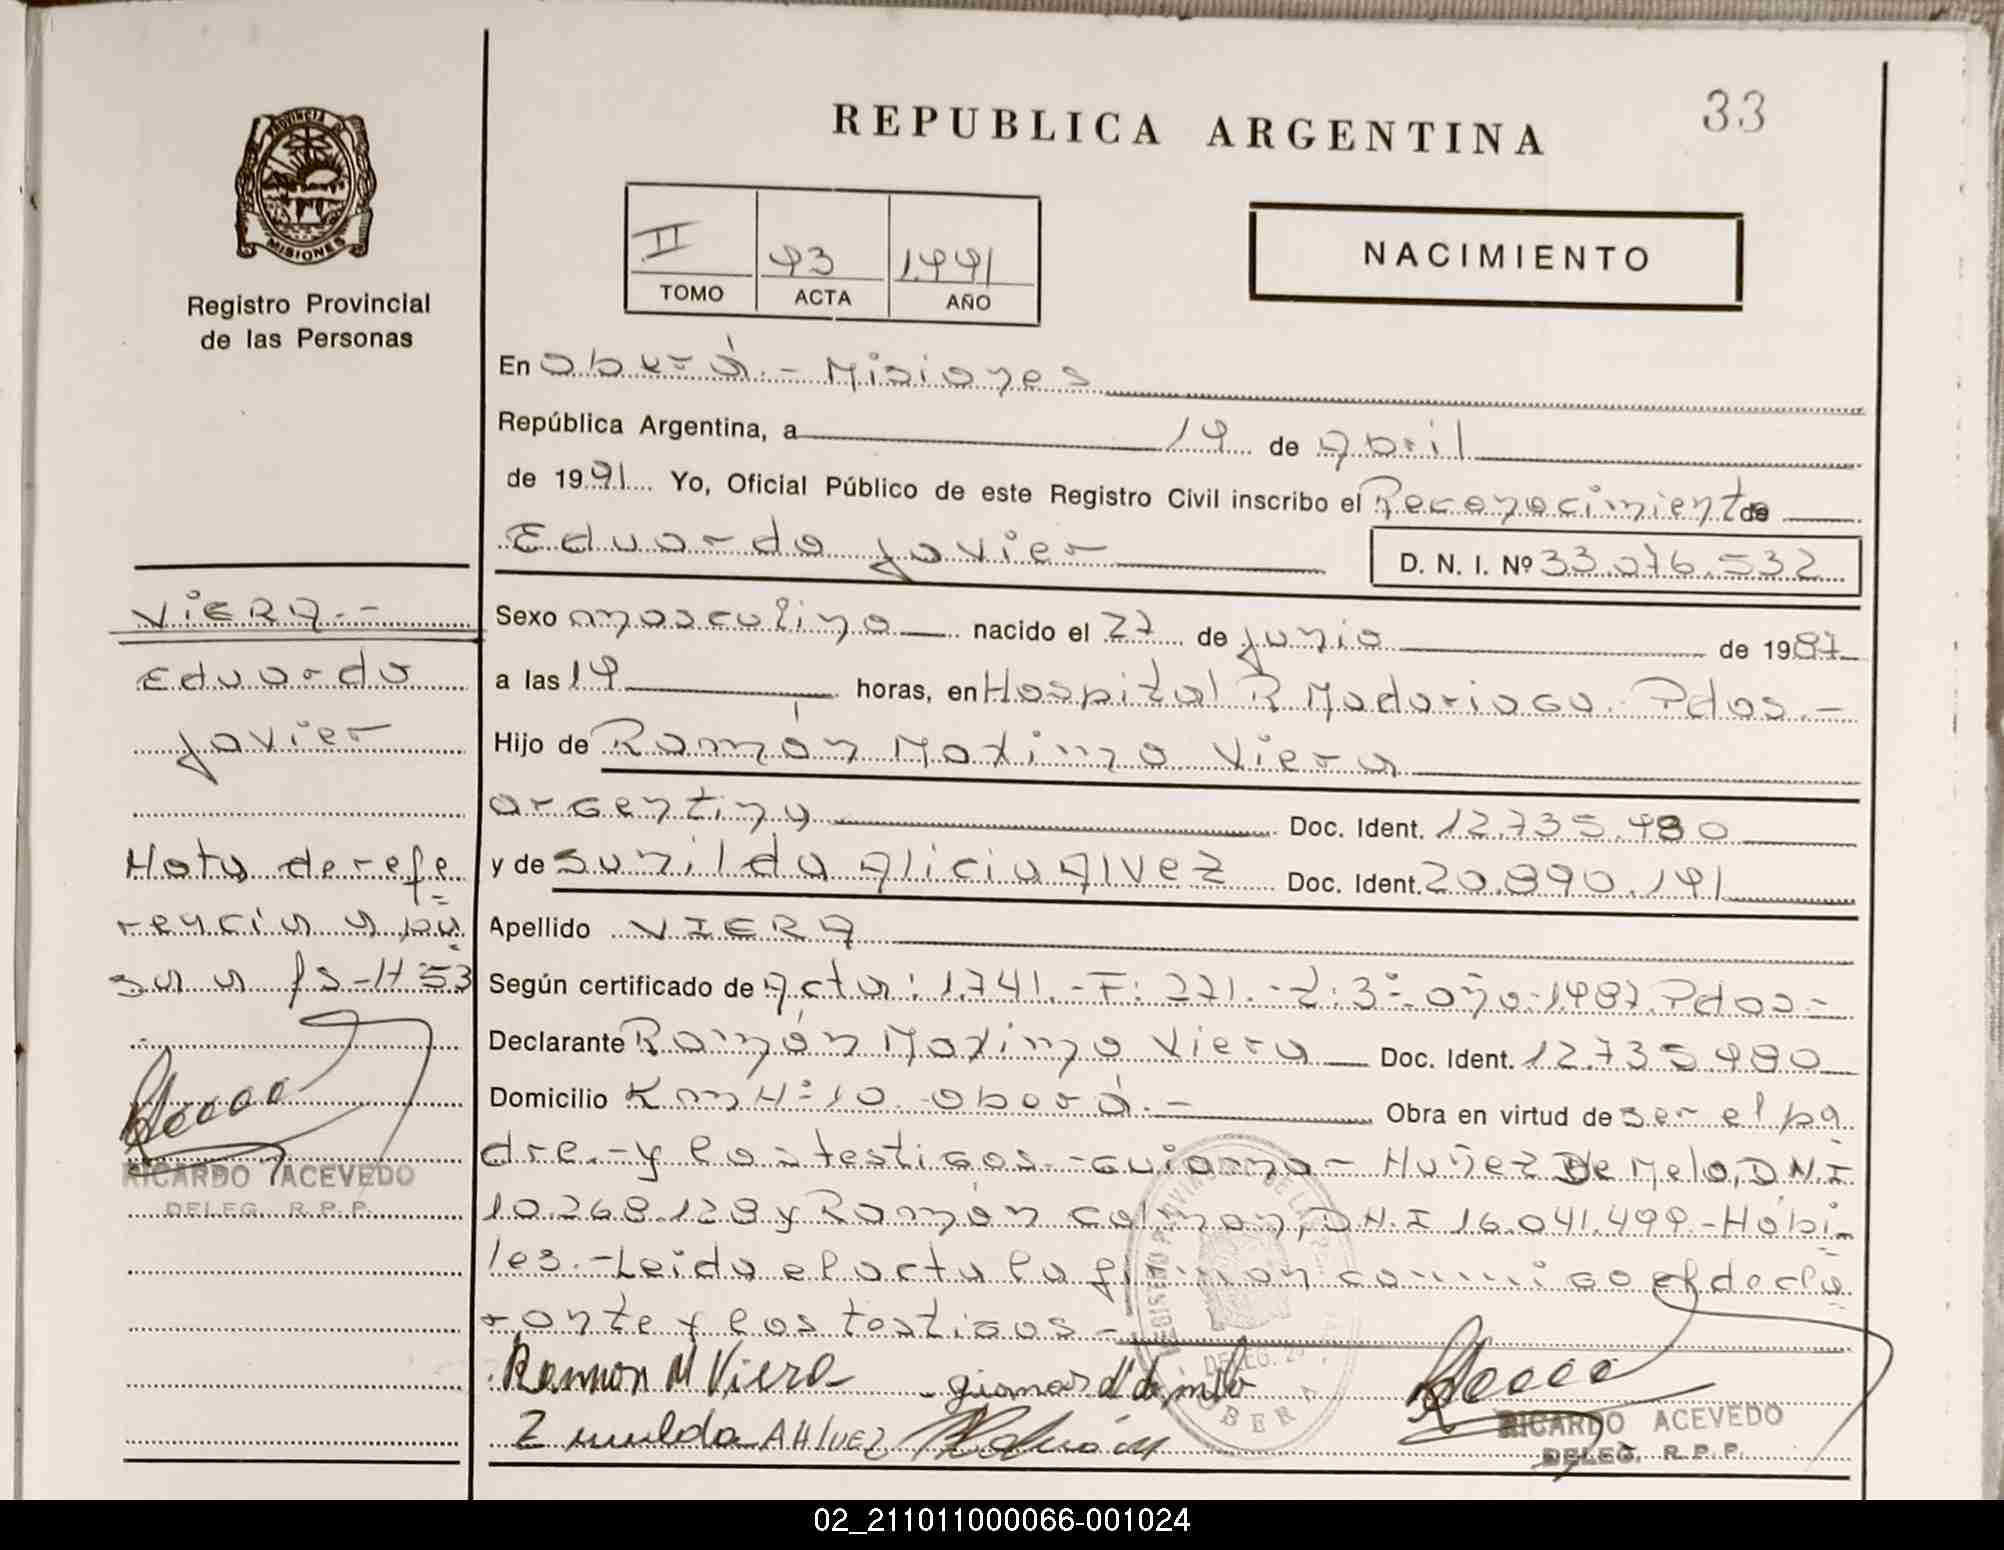 33
REPUBLICA ARGENTINA
PROVINCIA DE
MISIONES
Registro Provincial
de las Personas
II 93 1.991
TOMO ACTA AÑO
NACIMIENTO
En Oberá.- Misiones
República Argentina, a 19 de abril
de 1991 Yo, Oficial Público de este Registro Civil inscribo el Reconocimiento de
Eduardo Javier D. N. I. Nº 33.076.532
Sexo masculino nacido el 27 de junio de 1987
a las 19 horas, en Hospital R Madariaga. Pdas.-
Hijo de Ramón Maximo Viera
argentina Doc. Ident. 12.735.980
y de Sunilda Alicia Alvez Doc. Ident. 20.890.191
Apellido VIERA
Según certificado de Acta: 1.741.- F: 271.- T: 3º- año: 1.987. Pdas.-
Declarante Ramón Maximo Viera Doc. Ident. 12.735.980
Domicilio Km Nº 10. Oberá.- Obra en virtud de ser el pa
dre.- y los testigos.- Guiarma- Nuñez De Melo, D.N.I
10.268.128 y Ramón Colman, D.N.I 16.041.499.- Hábi-
les.- Leida el acta la firman conmigo el decla
rante y los testigos -
Ramon M Viera
AHlvez
RICARDO ACEVEDO
DELEG. R. P. P.
OBERA
VIERA.-
Eduardo
Javier
Nota de refe
rencia a pa
sa a fs-N 53
RICARDO ACEVEDO
DELEG. R. P. P.
02_211011000066-001024